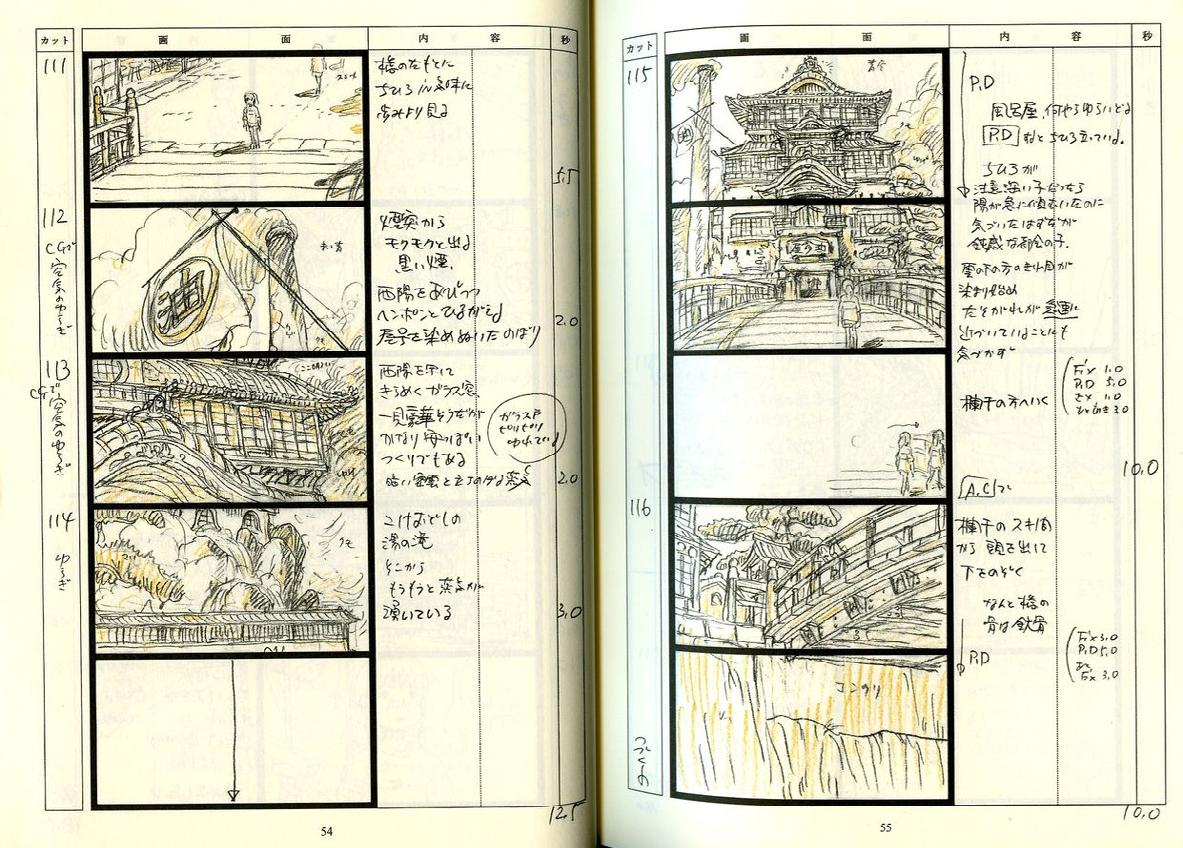 カット
画 面
内 容
秒
111
橋のたもとに
ちひろ
歩みより見る
5.5
112
CGで
空気のゆらぎ
煙突から
モクモクと出る
黒い煙、
西陽をあびつつ
ヘンポンとひるがえる
屋号を染めぬいたのぼり
2.0
113
CGで
空気のゆらぎ
西陽を
きらめくガラス窓、
一見豪華そうだが
かなり安っぽい
つくりでもある
ガラス戸
ゆれている
2.0
114
ゆらぎ
こけおどしの
湯の滝
そこから
もうもうと蒸気が
湧いている
3.0
12.5
54
カット
画 面
内 容
秒
115
P.D
風呂屋、何やらゆらいでる
P.D すると ちひろ立っている。
ちひろが
注意深い子だったら
陽が急に傾いたのに
気づいたはずだが
鈍感な都会の子、
染まり始め
たそがれが急速に
近づいていることにも
気づかず
Fix 1.0
P.D 5.0
欄干の方へいく
10.0
A.Cで
116
欄干のスキ間
から 頭を出して
下をのぞく
なんと橋の
骨は鉄骨
Fix 3.0
P.D 5.0
Fix 3.0
P.D
コンクリ
10.0
55